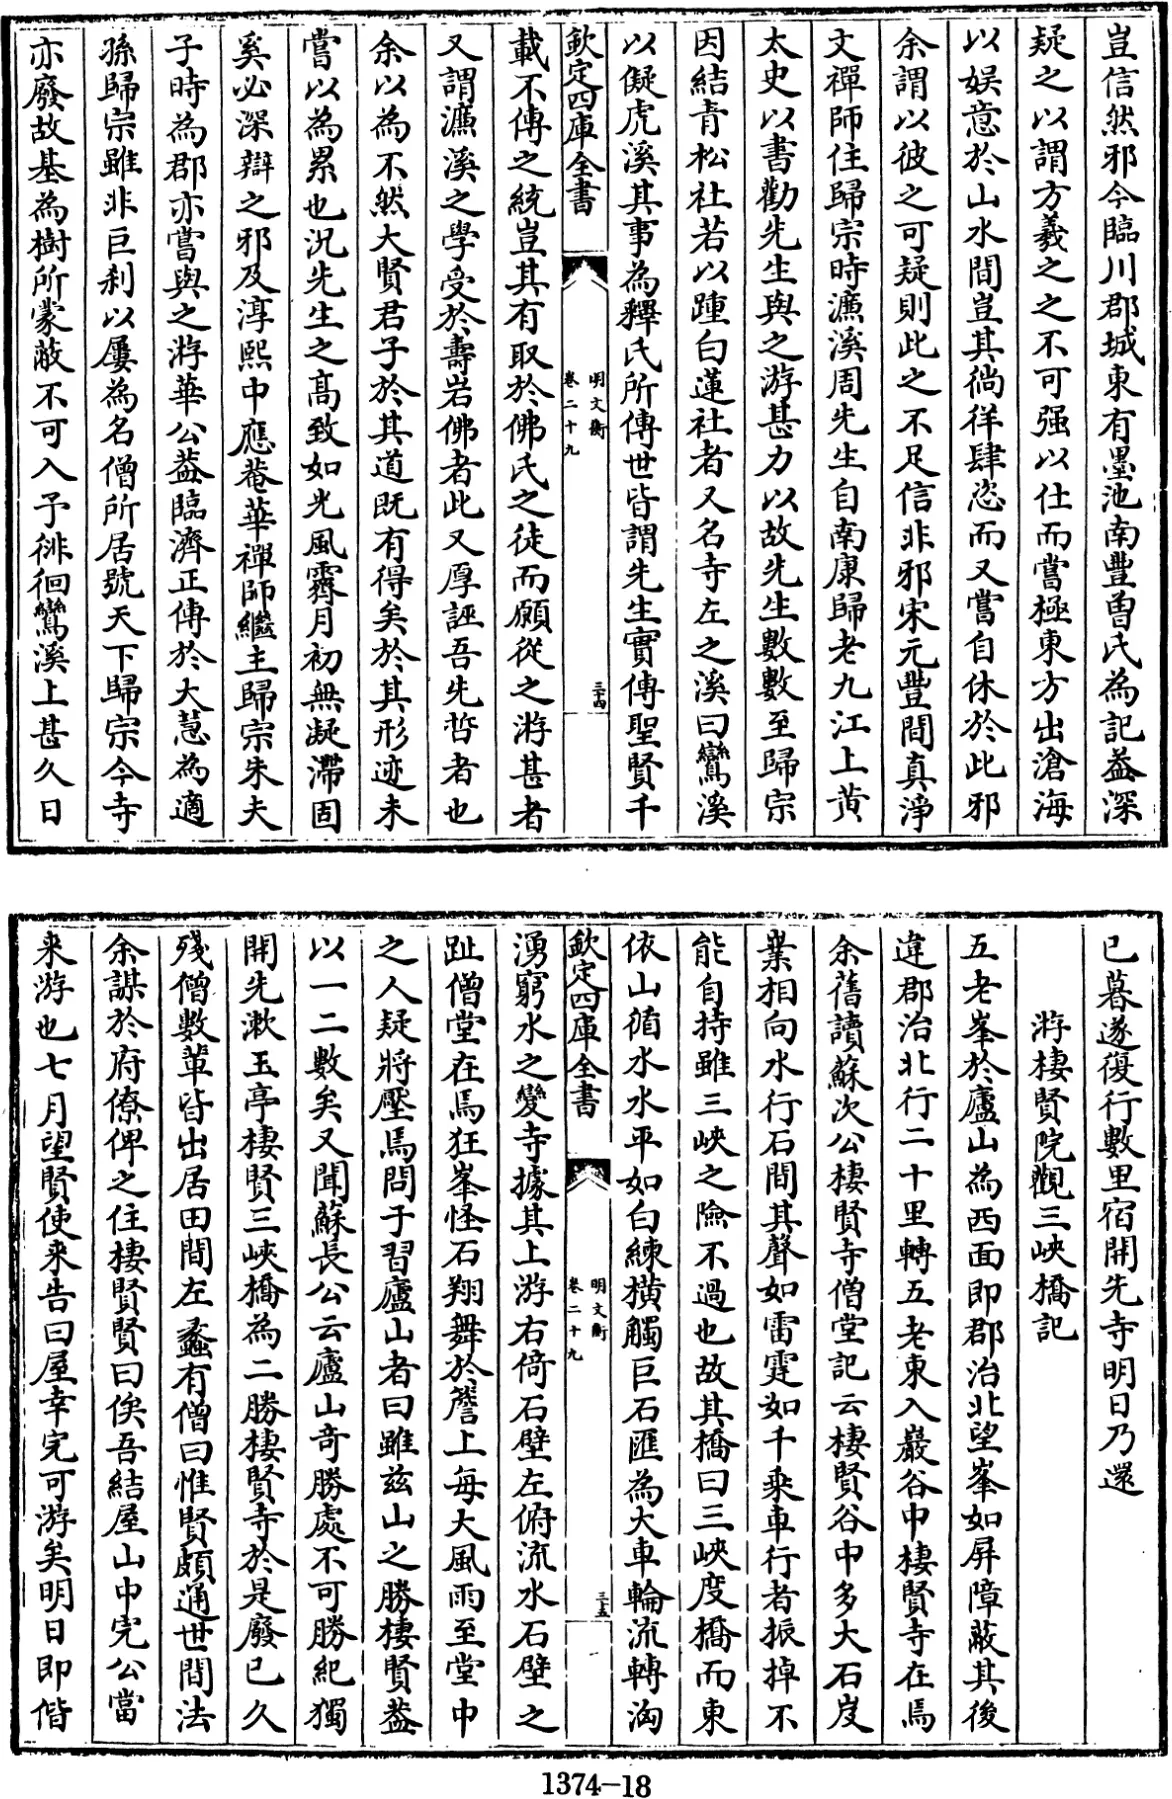 豈信然邪今臨川郡城東有墨池南豐曾氏為記益深
疑之以謂方羲之之不可强以仕而嘗極東方出滄海
以娱意於山水間豈其徜徉肆恣而又嘗自休於此邪
余謂以彼之可疑則此之不足信非邪宋元豐間真淨
文禪師住歸宗時濂溪周先生自南康歸老九江上黄
太史以書勸先生與之游甚力以故先生數數至歸宗
因結青松社若以踵白蓮社者又名寺左之溪曰鸞溪
以儗虎溪其事為釋氏所傳世皆謂先生實傳聖賢千
欽定四庫全書
明文衡
卷二十九
三十四
載不傳之統豈其有取於佛氏之徒而願從之游甚者
又謂濂溪之學受於壽岩佛者此又厚誣吾先哲者也
余以為不然大賢君子於其道既有得矣於其形迹未
嘗以為累也況先生之高致如光風霽月初無凝滯固
奚必深辯之邪及淳熙中應菴華禪師繼主歸宗朱夫
子時為郡亦嘗與之游華公葢臨濟正傳於大慧為適
孫歸宗雖非巨刹以屢為名僧所居號天下歸宗今寺
亦廢故基為樹所蒙蔽不可入予徘徊鸞溪上甚久日
已暮遂復行數里宿開先寺明日乃還
游棲賢院觀三峽橋記
五老峯於廬山為西面即郡治北望峯如屏障蔽其後
違郡治北行二十里轉五老東入巖谷中棲賢寺在焉
余舊讀蘇次公棲賢寺僧堂記云棲賢谷中多大石岌
嶪相向水行石間其聲如雷霆如千乘車行者振掉不
能自持雖三峽之險不過也故其橋曰三峽度橋而東
依山循水水平如白練横觸巨石匯為大車輪流轉洶
欽定四庫全書
明文衡
卷二十九
三十五
湧窮水之變寺據其上游右倚石壁左俯流水石壁之
趾僧堂在焉狂峯怪石翔舞於簷上每大風雨至堂中
之人疑將壓焉問于習廬山者曰雖兹山之勝棲賢葢
以一二數矣又聞蘇長公云廬山奇勝處不可勝紀獨
開先漱玉亭棲賢三峽橋為二勝棲賢寺於是廢已久
殘僧數輩皆出居田間左蠡有僧曰惟賢頗通世間法
余謀於府僚俾之住棲賢賢曰俟吾結屋山中完公當
来游也七月望賢使来告曰屋幸完可游矣明日即偕
1374-18